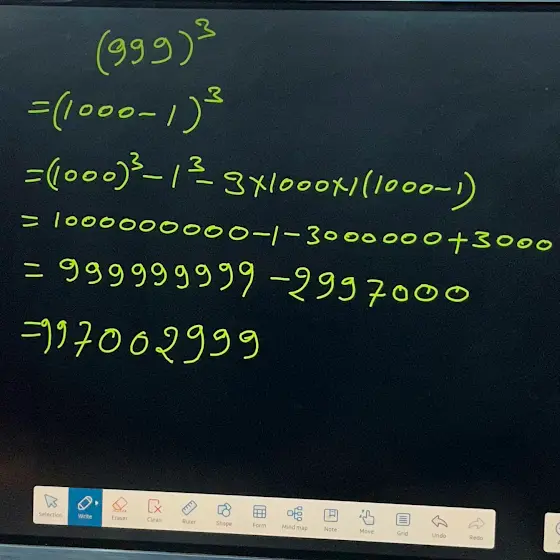 (999)³
=(1000-1)³
=(1000)³-1³-3×1000×1(1000-1)
=1000000000-1-3000000+3000
=999999999-2997000
=997002999
Selection Write Eraser Clean Ruler Shape Form Mind map Note More Grid Undo Redo